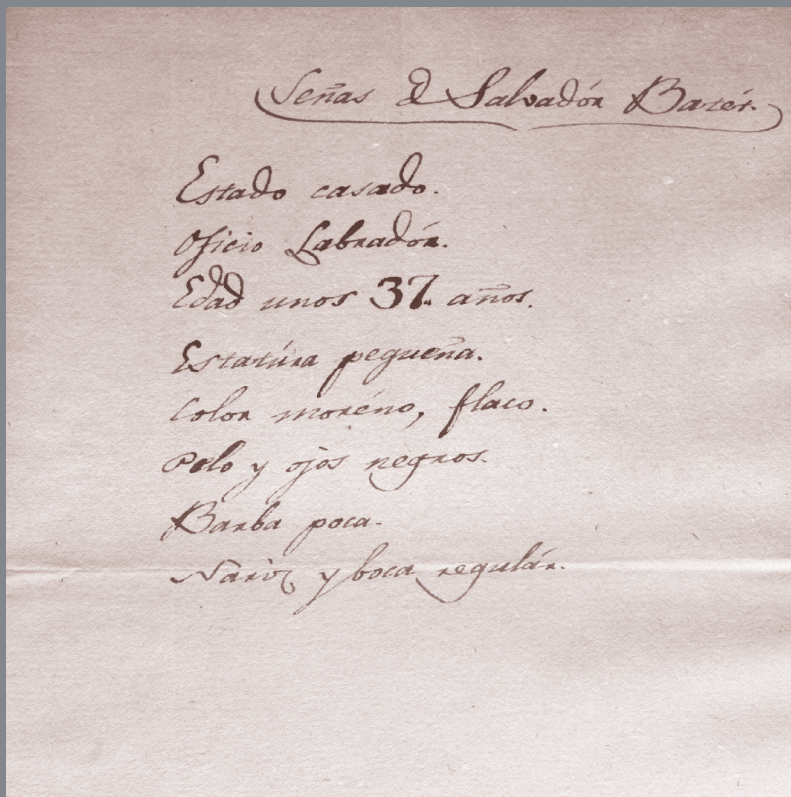 Señas d Salvadór Barér.
Estado casado.
Oficio Labradór.
Edad unos 37. años.
Estatúra pequeña.
Color moréno, flaco.
Pelo y ojos negros.
Barba poca.
Nariz y boca regulár.